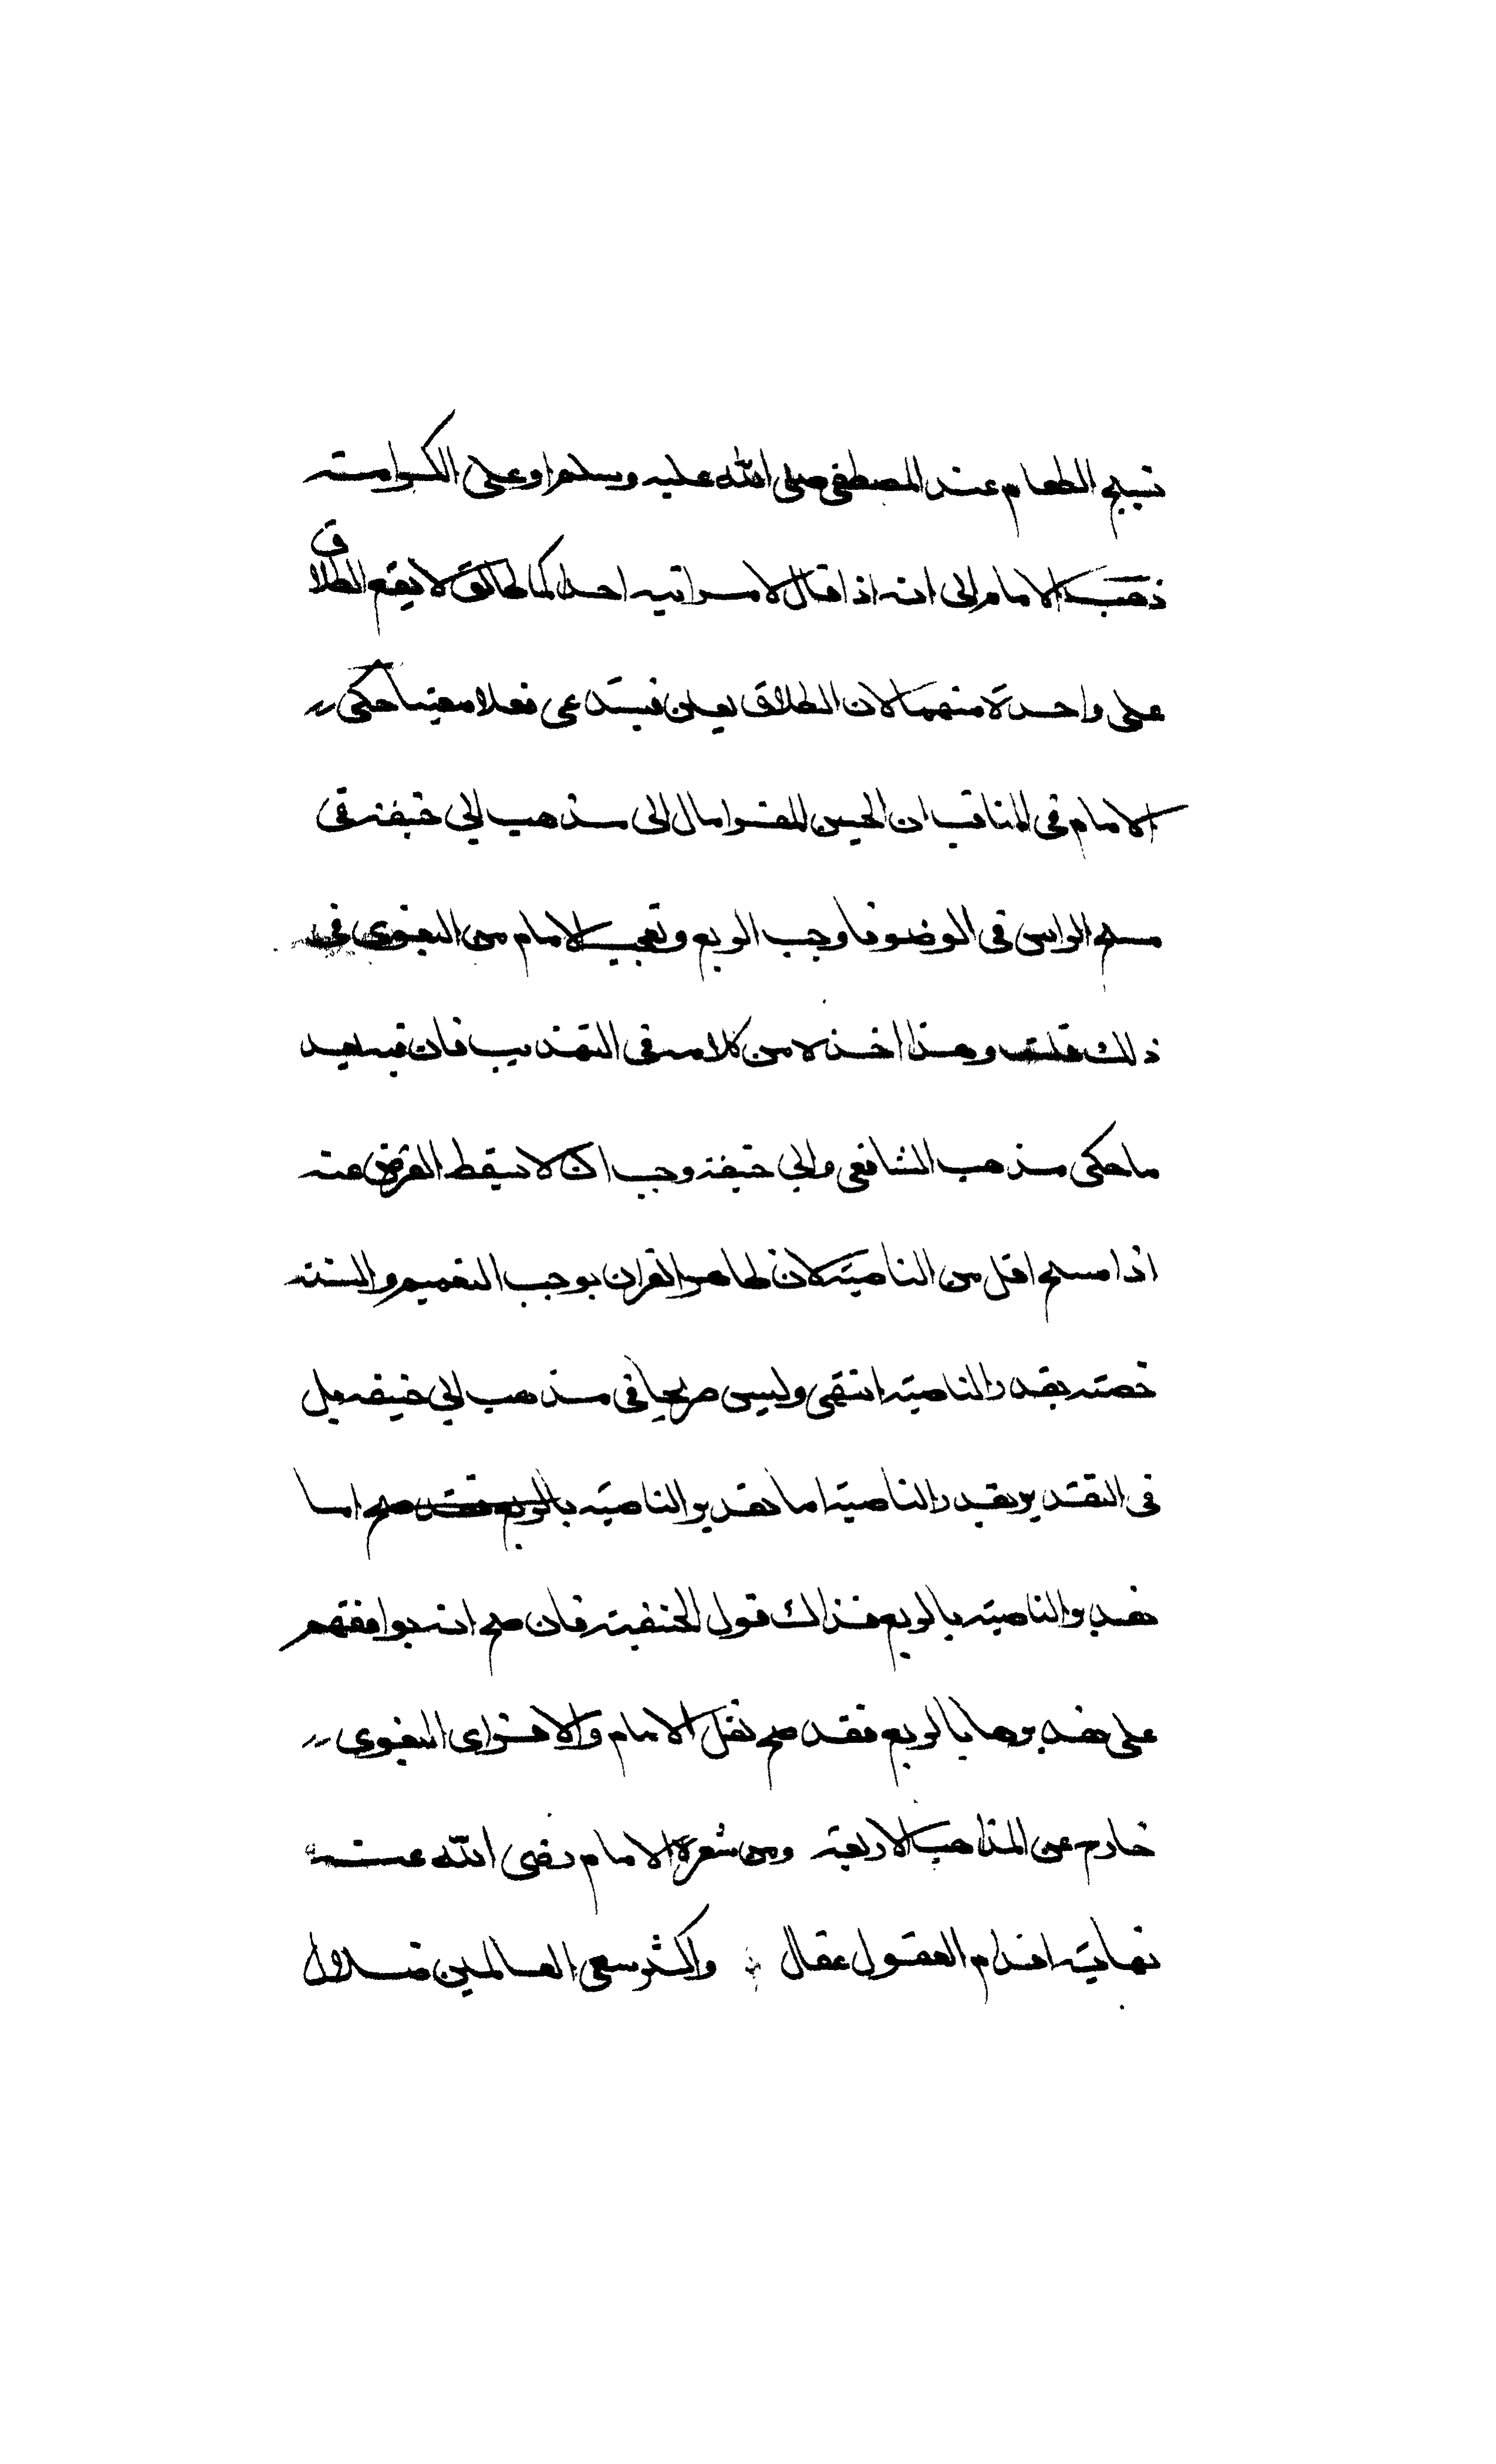 تسبيح الطعام عند المصطفى صلى الله عليه وسلم او على الكرامته
ذهب الامام الى انه اذا قال لامراتيه احداكما طالق لا يقع الطلاق
على واحدة منهما لان الطلاق تعين فيستدعى فعلا معينا حكى
الامام في المناقب ان الحسين الفرا مال الى مذهب ابي حنيفه في
مسح الراس في الوضو فاوجب الربع وتعجب الامام من البغوى في
ذلك قلت وهذا اخذه من كلامه في التهذيب فان فيه بعد
ما حكى مذهب الشافعى وابي حنيفه وجب ان لا يسقط الفرض عنه
اذا مسح اقل من الناصيته لان ظاهر القران يوجب التعميم والسنته
خصته بقدر الناصيته انتهى وليس صريحا في مذهب ابي حنيفه بل
في التقدير بقدر الناصيته اما تقدير الناصيته بالربع فقد صح اما
تقدير الناصيته بالربع فذاك قول الحنفيته فان صح انه يوافقهم
على تقديرها بالربع فقد صح نقل الامام والا فراى البغوى
خارج عن المذاهب الاربعته ومن شعره الامام رضى الله عنه
نهايته اقدام العقول عقال واكثر سعى العالمين ضلال